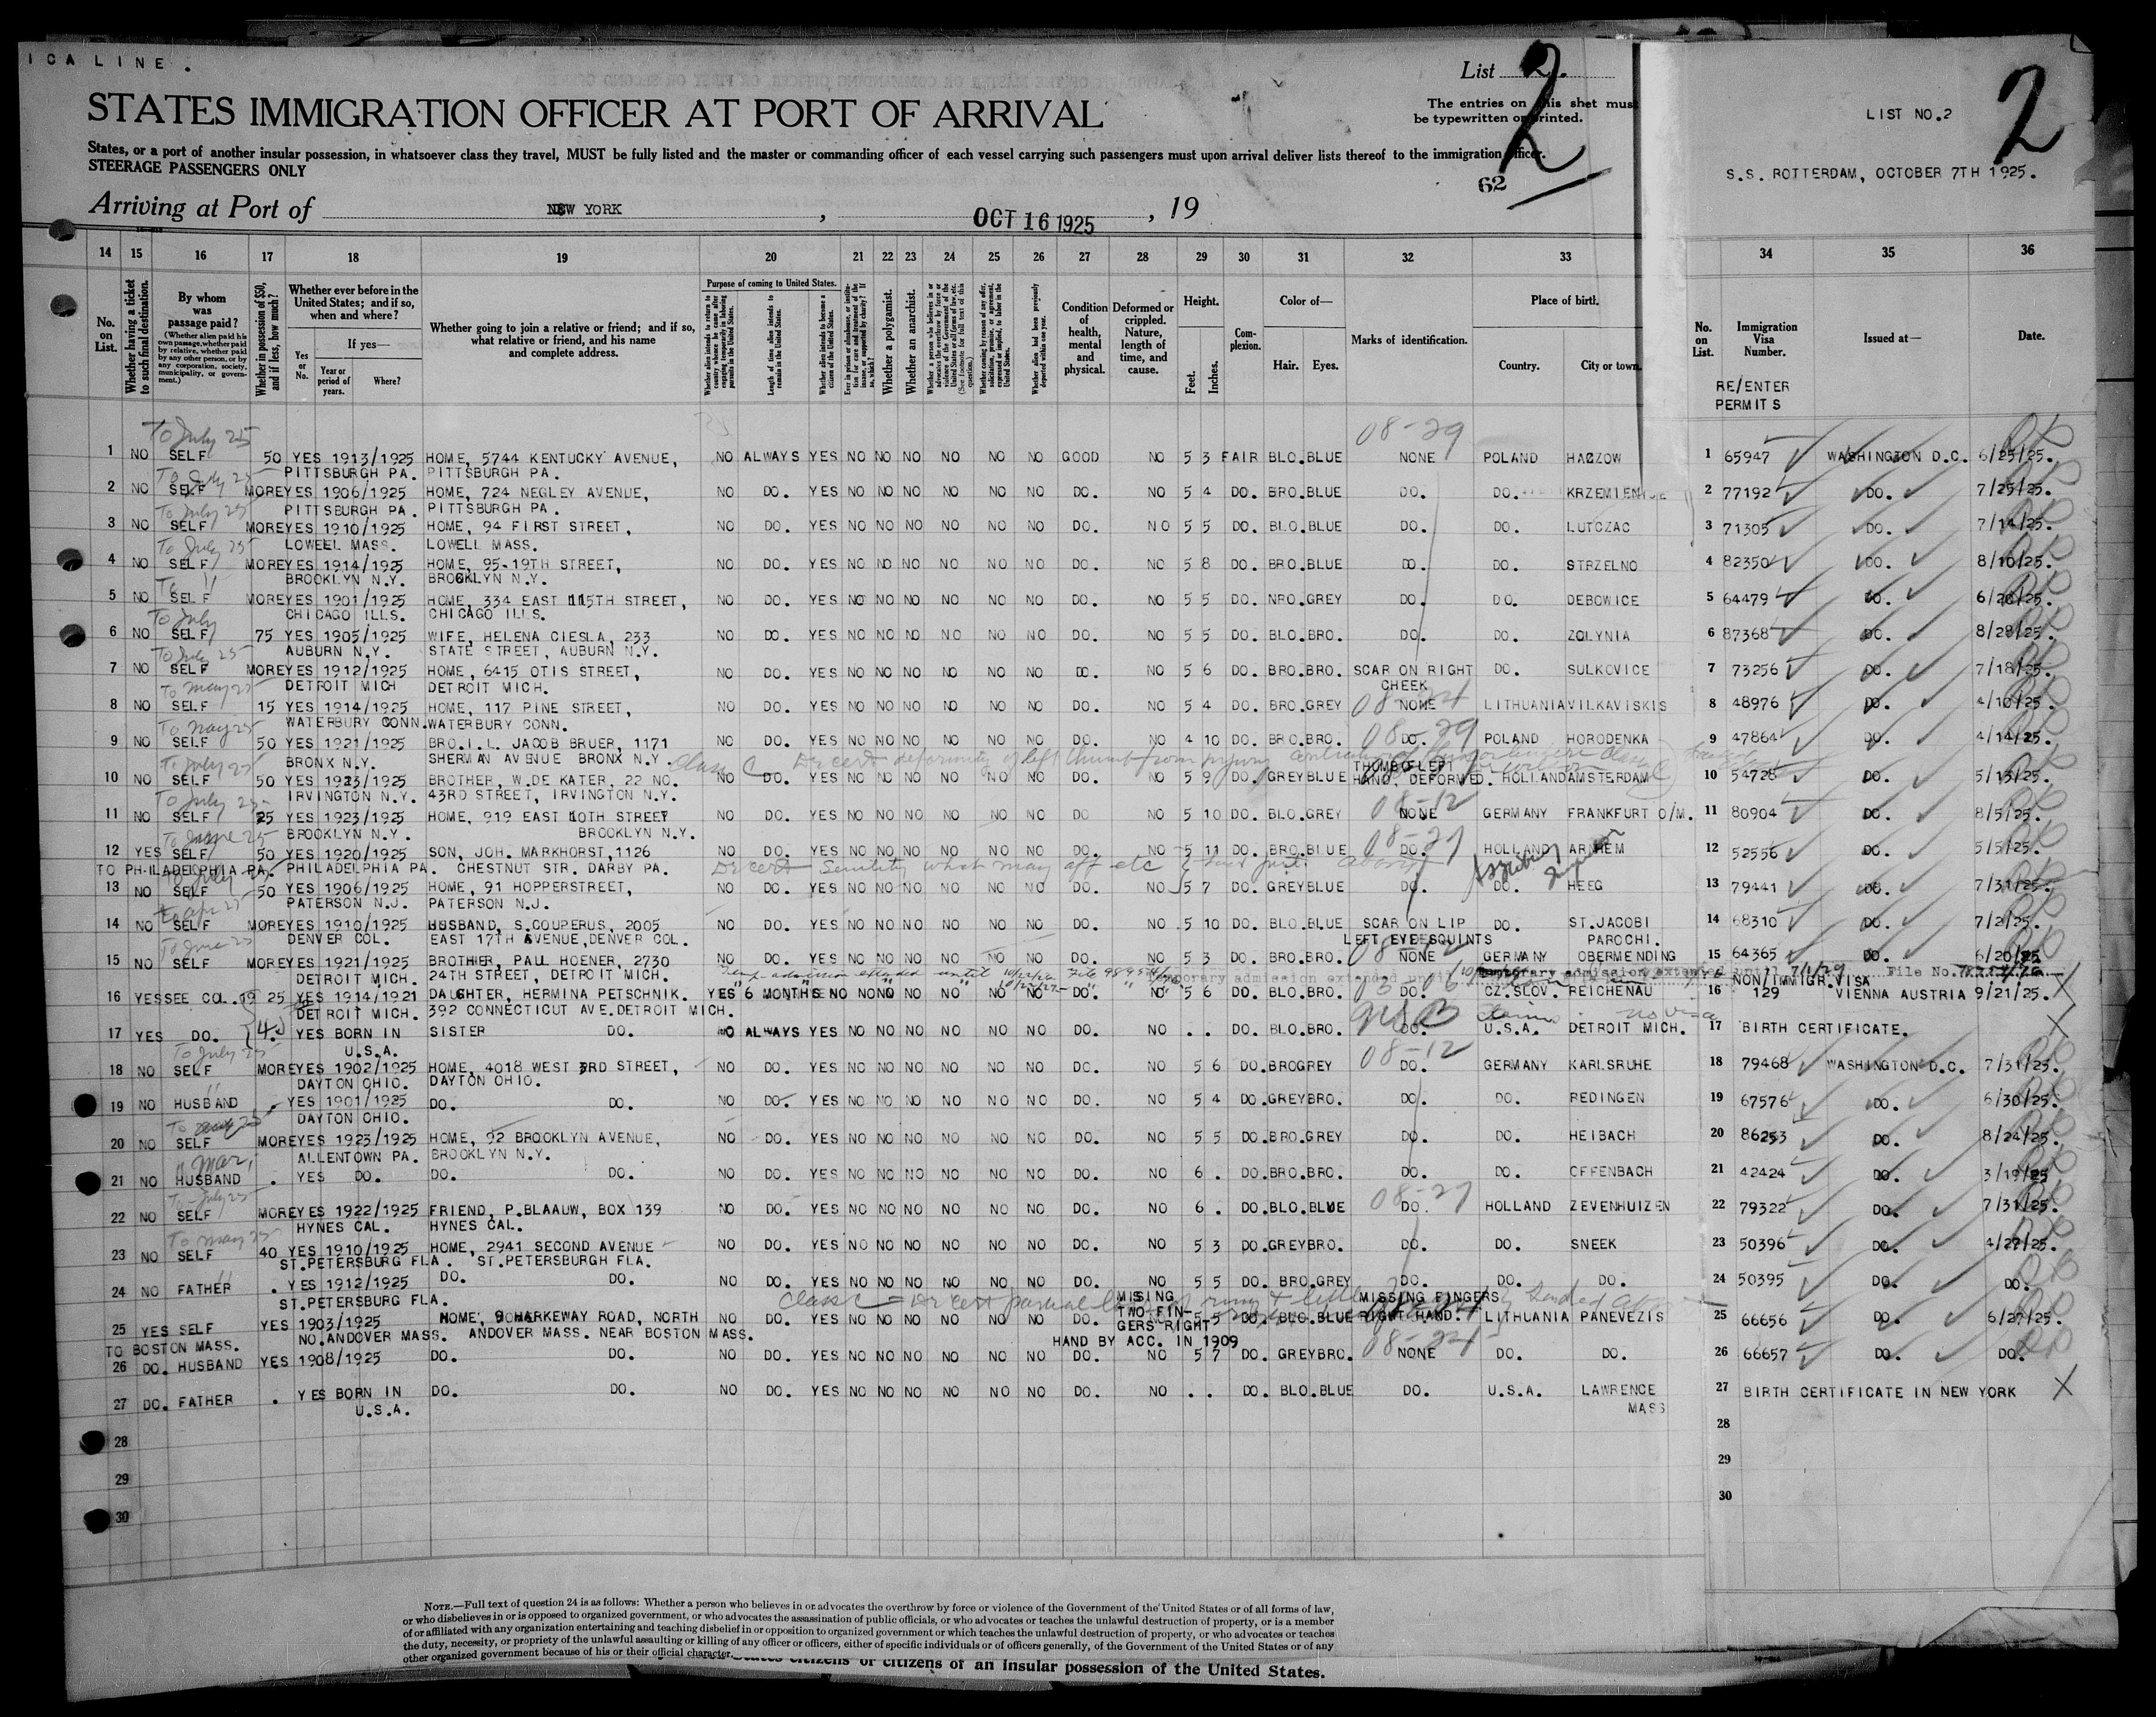 ICA LINE.
List 2.
2
LIST NO.2
2
STATES IMMIGRATION OFFICER AT PORT OF ARRIVAL
The entries on this shet must
be typewritten or printed.
States, or a port of another insular possession, in whatsoever class they travel, MUST be fully listed and the master or commanding officer of each vessel carrying such passengers must upon arrival deliver lists thereof to the immigration officer.
STEERAGE PASSENGERS ONLY
62
S.S. ROTTERDAM, OCTOBER 7TH 1925.
Arriving at Port of NEW YORK, OCT 16 1925, 19
14 15 16 17 18 19 20 21 22 23 24 25 26 27 28 29 30 31 32 33 34 35 36
No. on List.
Whether having a ticket to such final destination.
By whom was passage paid?
(Whether alien paid his own passage, whether paid by relative, whether paid by any other person, or by any corporation, society, municipality, or government.)
Whether in possession of $50, and if less, how much?
Whether ever before in the United States; and if so, when and where?
Yes or No.
If yes—
Year or period of years.
Where?
Whether going to join a relative or friend; and if so, what relative or friend, and his name and complete address.
Purpose of coming to United States.
Length of time alien intends to remain in the United States.
Whether alien intends to become a citizen of the United States.
Whether a polygamist.
Whether an anarchist.
Condition of health, mental and physical.
Deformed or crippled. Nature, length of time, and cause.
Height.
Feet.
Inches.
Complexion.
Color of—
Hair.
Eyes.
Marks of identification.
Place of birth.
Country.
City or town.
No. on List.
Immigration Visa Number.
RE/ENTER PERMITS
Issued at—
Date.
To July 25
08-29
1 NO SELF 50 YES 1913/1925 HOME, 5744 KENTUCKY AVENUE, NO ALWAYS YES NO NO NO NO NO NO GOOD NO 5 3 FAIR BLO. BLUE NONE POLAND HACZOW 1 65947 WASHINGTON D.C. 6/25/25.
PITTSBURGH PA. PITTSBURGH PA.
2 NO SELF MORE YES 1906/1925 HOME, 724 NEGLEY AVENUE, NO DO. YES NO NO NO NO NO NO DO. NO 5 4 DO. BRO. BLUE DO. DO. KRZEMIENICE 2 77192 DO. 7/25/25.
PITTSBURGH PA. PITTSBURGH PA.
3 NO SELF MORE YES 1910/1925 HOME, 94 FIRST STREET, NO DO. YES NO NO NO NO NO NO DO. NO 5 5 DO. BLO. BLUE DO. DO. LUTCZAC 3 71305 DO. 7/14/25.
LOWELL MASS. LOWELL MASS.
4 NO SELF MORE YES 1914/1925 HOME, 95-19TH STREET, NO DO. YES NO NO NO NO NO NO DO. NO 5 8 DO. BRO. BLUE DO. DO. STRZELNO 4 82350 DO. 8/10/25.
BROOKLYN N.Y. BROOKLYN N.Y.
5 NO SELF MORE YES 1901/1925 HOME, 334 EAST 115TH STREET, NO DO. YES NO NO NO NO NO NO DO. NO 5 5 DO. NRO. GREY DO. DO. DEBOWICE 5 64479 DO. 6/20/25.
CHICAGO ILLS. CHICAGO ILLS.
6 NO SELF 75 YES 1905/1925 WIFE, HELENA CIESLA, 233 NO DO. YES NO NO NO NO NO NO DO. NO 5 5 DO. BLO. BRO. DO. DO. ZOLYNIA 6 87368 DO. 8/28/25.
AUBURN N.Y. STATE STREET, AUBURN N.Y.
7 NO SELF MORE YES 1912/1925 HOME, 6415 OTIS STREET, NO DO. YES NO NO NO NO NO NO DO. NO 5 6 DO. BRO. BRO. SCAR ON RIGHT CHEEK DO. SULKOVICE 7 73256 DO. 7/18/25.
DETROIT MICH DETROIT MICH.
To May 25
8 NO SELF 15 YES 1914/1925 HOME, 117 PINE STREET, NO DO. YES NO NO NO NO NO NO DO. NO 5 4 DO. BRO. GREY NONE LITHUANIA VILKAVISKIS 8 48976 DO. 4/10/25.
WATERBURY CONN. WATERBURY CONN.
To May 25
08-29
9 NO SELF 50 YES 1921/1925 BRO.I.L. JACOB BRUER, 1171 NO DO. YES NO NO NO NO NO NO DO. NO 4 10 DO. BRO. BRO. DO. POLAND HORODENKA 9 47864 DO. 4/14/25.
BRONX N.Y. SHERMAN AVENUE BRONX N.Y.
Class C Dr cert deformity of left thumb from injury
10 NO SELF 50 YES 1923/1925 BROTHER, W.DE KATER, 22 NO. NO DO. YES NO NO NO NO NO NO DO. NO 5 9 DO. GREY BLUE THUMB LEFT HAND, DEFORMED. HOLLAND AMSTERDAM 10 54728 DO. 5/13/25.
IRVINGTON N.Y. 43RD STREET, IRVINGTON N.Y.
08-12
11 NO SELF 25 YES 1923/1925 HOME, 919 EAST 10TH STREET NO DO. YES NO NO NO NO NO NO DO NO 5 10 DO. BLO. GREY NONE GERMANY FRANKFURT O/M. 11 80904 DO. 8/5/25.
BROOKLYN N.Y. BROOKLYN N.Y.
To June 25
08-27
12 YES SELF 50 YES 1920/1925 SON, JOH. MARKHORST, 1126 NO DO. YES NO NO NO NO NO NO DO. NO 5 11 DO. BRO. BLUE DO. HOLLAND ARNHEM 12 52556 DO. 5/5/25.
TO PHILADELPHIA PA. PHILADELPHIA PA. CHESTNUT STR. DARBY PA.
Dr cert Senility which may aff etc
13 NO SELF 50 YES 1906/1925 HOME, 91 HOPPERSTREET, NO DO. YES NO NO NO NO NO NO DO. NO 5 7 DO. GREY BLUE DO. DO. HEEG 13 79441 DO. 7/31/25.
PATERSON N.J. PATERSON N.J.
14 NO SELF MORE YES 1910/1925 HUSBAND, S.COUPERUS, 2005 NO DO. YES NO NO NO NO NO NO DO. NO 5 10 DO. BLO. BLUE SCAR ON LIP DO. ST.JACOBI PAROCHI. 14 68310 DO. 7/2/25.
DENVER COL. EAST 17TH AVENUE, DENVER COL. LEFT EYE SQUINTS
15 NO SELF MORE YES 1921/1925 BROTHER, PAUL HOENER, 2730 NO DO. YES NO NO NO NO NO NO DO. NO 5 3 DO. BRO. BRO. NONE GERMANY OBERMENDING 15 64365 DO. 6/20/25
DETROIT MICH. 24TH STREET, DETROIT MICH.
Temporary admission extended until 7/1/29 File No.
16 YES SEE COL. 19 25 YES 1914/1921 DAUGHTER, HERMINA PETSCHNIK. YES 6 MONTHS NO NO NO NO NO NO DO. NO 5 6 DO. BLO. BRO. DO. CZ.SLOV. REICHENAU 16 NON/IMMIGR.VISA 129 VIENNA AUSTRIA 9/21/25.
DETROIT MICH. 392 CONNECTICUT AVE. DETROIT MICH.
USB
17 YES DO. YES BORN IN U.S.A. SISTER DO. NO ALWAYS YES NO NO NO NO NO NO DO. NO . . DO. BLO. BRO. DO. U.S.A. DETROIT MICH. 17 BIRTH CERTIFICATE. X
To July 25
08-12
18 NO SELF MORE YES 1902/1925 HOME, 4018 WEST 3RD STREET, NO DO. YES NO NO NO NO NO NO DO. NO 5 6 DO. BRO GREY DO. GERMANY KARLSRUHE 18 79468 WASHINGTON D.C. 7/31/25.
DAYTON OHIO. DAYTON OHIO.
19 NO HUSBAND . YES 1901/1925 DO. DO. NO DO. YES NO NO NO NO NO NO DO. NO 5 4 DO. GREY BRO. DO. DO. REDINGEN 19 67576 DO. 6/30/25.
DAYTON OHIO.
20 NO SELF MORE YES 1923/1925 HOME, 92 BROOKLYN AVENUE, NO DO. YES NO NO NO NO NO NO DO. NO 5 5 DO. BRO. GREY DO. DO. HEIBACH 20 86253 DO. 8/24/25.
ALLENTOWN PA. BROOKLYN N.Y.
21 NO HUSBAND . YES DO. DO. DO. NO DO. YES NO NO NO NO NO NO DO. NO 6 . DO. BRO. BRO. DO. DO. OFFENBACH 21 42424 DO. 3/19/25
To July 25
08-27
22 NO SELF MORE YES 1922/1925 FRIEND, P.BLAAUW, BOX 139 NO DO. YES NO NO NO NO NO NO DO. NO 6 . DO. BLO. BLUE DO. HOLLAND ZEVENHUIZEN 22 79322 DO. 7/31/25.
HYNES CAL. HYNES CAL.
To May 25
23 NO SELF 40 YES 1910/1925 HOME, 2941 SECOND AVENUE NO DO. YES NO NO NO NO NO NO DO. NO 5 3 DO. GREY BRO. DO. DO. SNEEK 23 50396 DO. 4/27/25.
ST.PETERSBURG FLA. ST.PETERSBURGH FLA.
24 NO FATHER . YES 1912/1925 DO. DO. NO DO. YES NO NO NO NO NO NO DO. NO 5 5 DO. BRO. GREY DO. DO. DO. 24 50395 DO. DO.
ST.PETERSBURG FLA.
25 YES SELF YES 1903/1925 HOME, HARKEWAY ROAD, NORTH NO DO. YES NO NO NO NO NO NO DO. MISSING TWO FINGERS RIGHT HAND BY ACC. IN 1909 5 5 DO. BLO. BLUE MISSING FINGERS RIGHT HAND. LITHUANIA PANEVEZIS 25 66656 DO. 6/27/25.
TO BOSTON MASS. NO.ANDOVER MASS. ANDOVER MASS. NEAR BOSTON MASS.
08-24
26 DO. HUSBAND YES 1908/1925 DO. DO. NO DO. YES NO NO NO NO NO NO DO. NO 5 7 DO. GREY BRO. NONE DO. DO. 26 66657 DO. DO.
27 DO. FATHER . YES BORN IN U.S.A. DO. DO. NO DO. YES NO NO NO NO NO NO DO. NO . . DO. BLO. BLUE DO. U.S.A. LAWRENCE MASS 27 BIRTH CERTIFICATE IN NEW YORK X
28 28
29 29
30 30
NOTE.—Full text of question 24 is as follows: Whether a person who believes in or advocates the overthrow by force or violence of the Government of the United States or of all forms of law,
or who disbelieves in or is opposed to organized government, or who advocates the assassination of public officials, or who advocates or teaches the unlawful destruction of property, or is a member
of or affiliated with any organization entertaining and teaching disbelief in or opposition to organized government or which teaches the unlawful destruction of property, or who advocates or teaches
the duty, necessity, or propriety of the unlawful assaulting or killing of any officer or officers, either of specific individuals or of officers generally, of the Government of the United States or of any
other organized government because of his or their official character.
citizens or citizens of an insular possession of the United States.